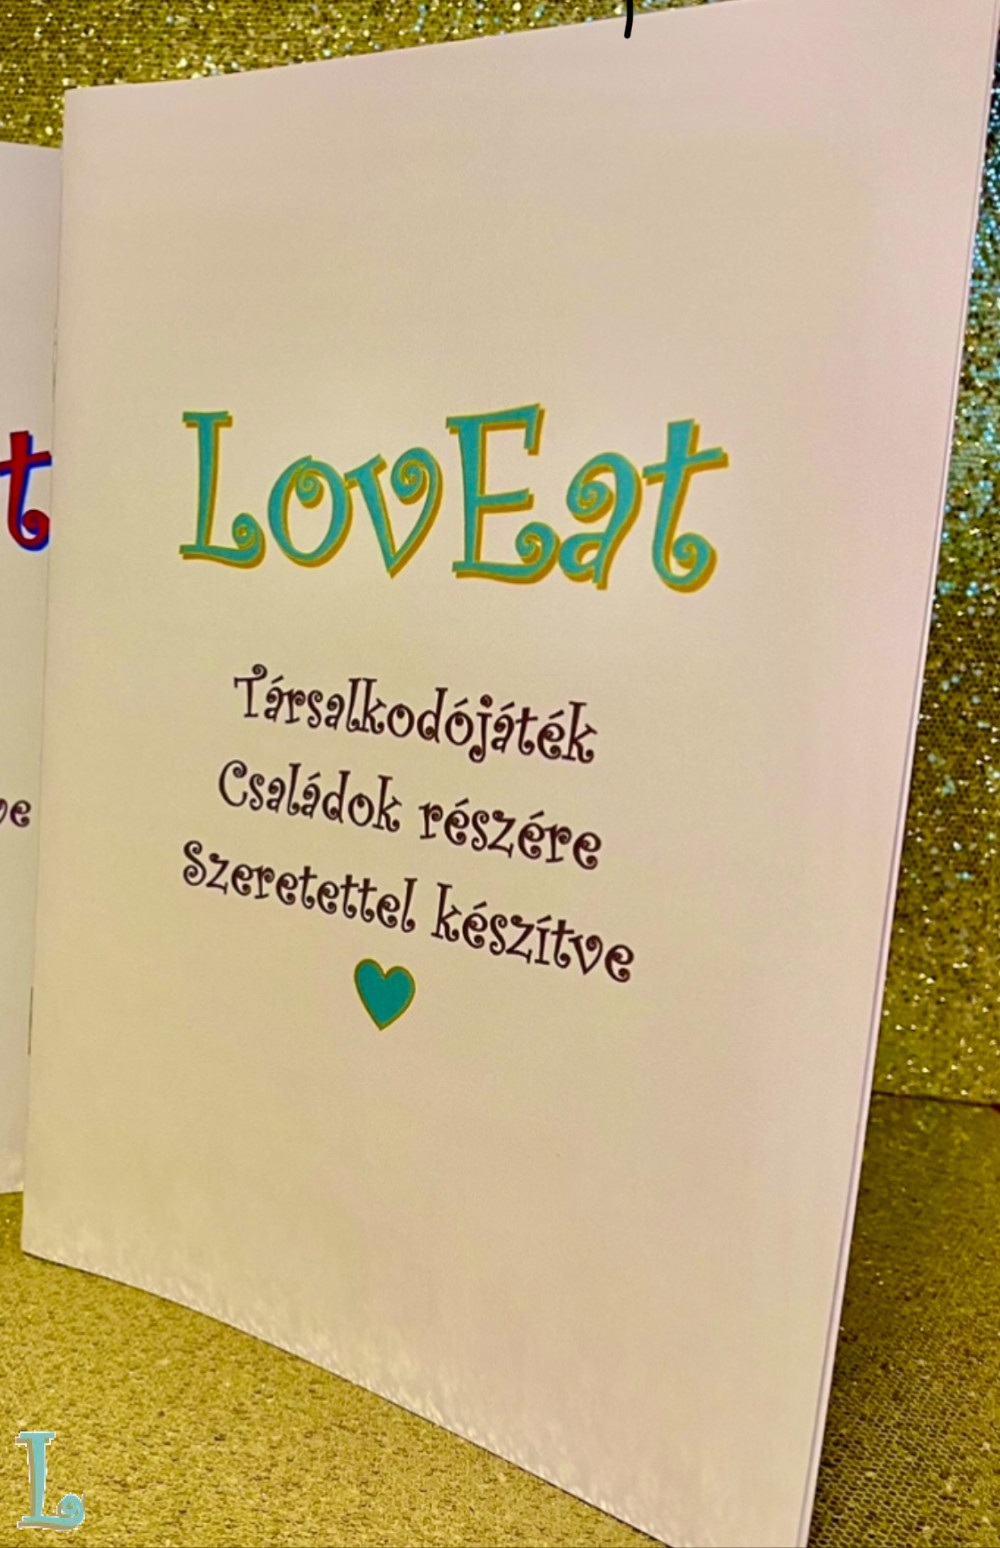 LovEat
Társalkodójáték
Családok részére
Szeretettel készítve
t
ve
L